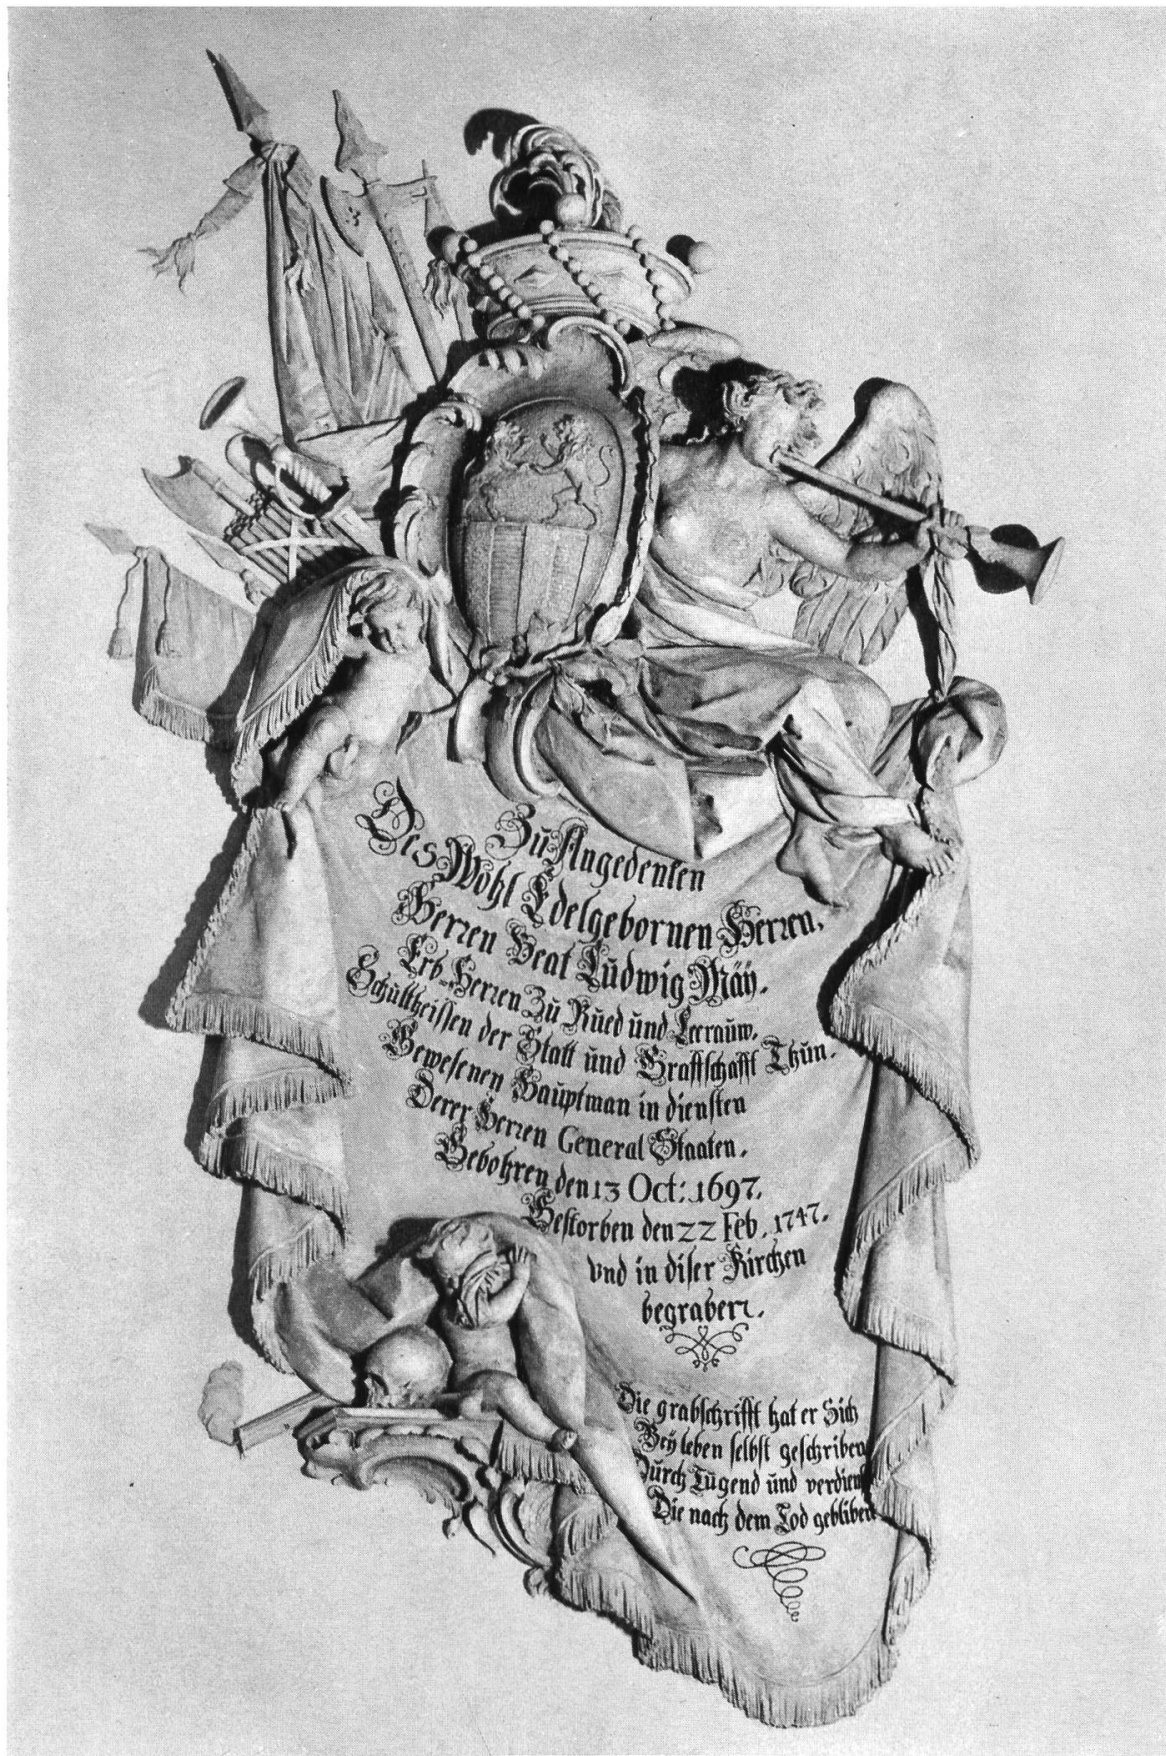 Zu Angedenken
Des Wohl Edelgebornen Herren,
Herren Beat Ludwig Mäÿ.
Erb-Herren Zu Rued und Leerauw.
Schultheissen der Statt und Graffschafft Thun.
Gewesenen Hauptman in diensten
Derer Herren General Staaten.
Gebohren den 13 Oct: 1697.
Gestorben den 22 Feb. 1747.
und in diser Kirchen
begraben.
Die grabschrifft hat er Sich
Beÿ leben selbst geschriben
Durch Tugend und verdienst
Die nach dem Tod gebliben